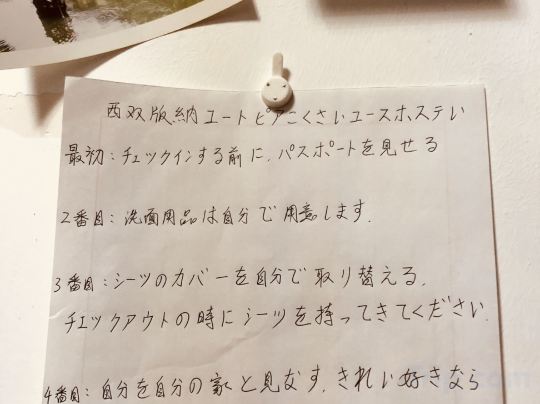 西双版納ユートピアこくさいユースホステい
最初：チェックインする前に、パスポートを見せる
2番目：洗面用品は自分で用意します.
3番目：シーツのカバーを自分で取り替える.
チェックアウトの時にシーツを持ってきてください.
4番目：自分を自分の家と見なす，きれい好きなら